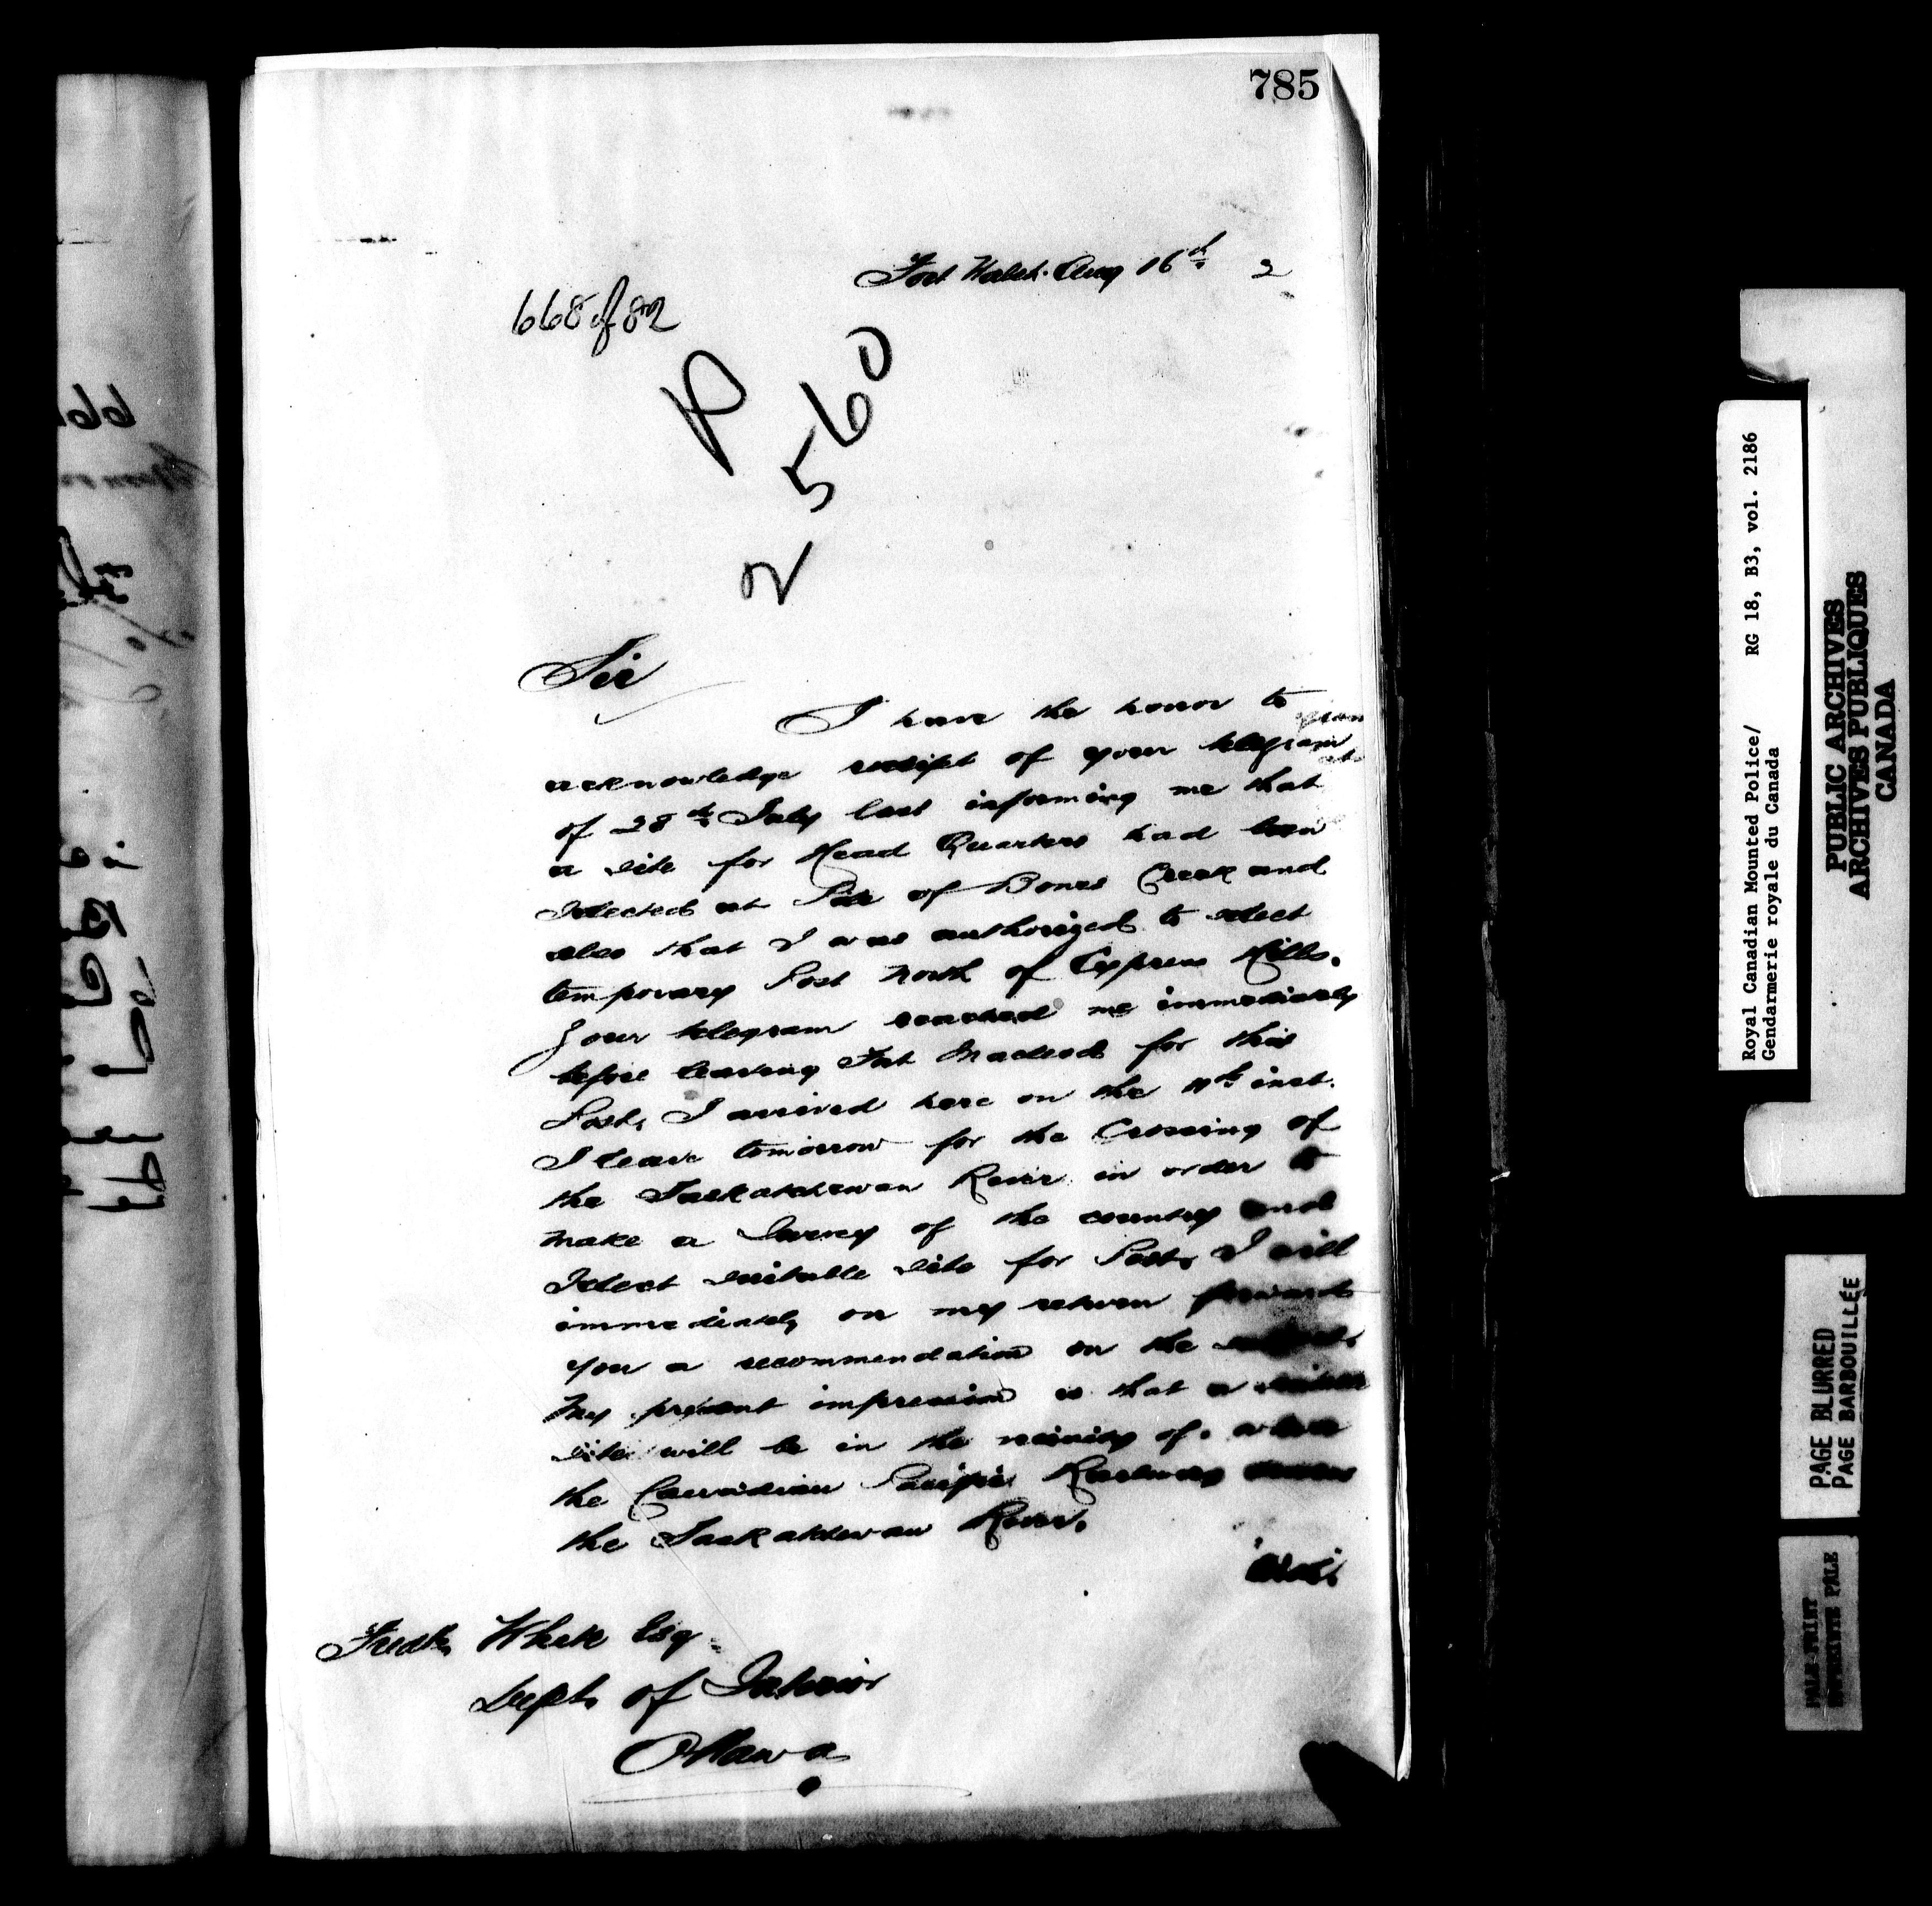 785
Fort Walsh Aug 16th 2
668 of 82
R
2560
Sir
I have the honor to
acknowledge receipt of your telegram
of 28th July last informing me that
a site for Head Quarters had been
selected at Pile of Bones Creek and
also that I was authorized to select
temporary Post north of Cypress Hills.
Your telegram reached me immediately
before leaving Fort Macleod for this
Post, I arrived here on the 11th inst.
I leave tomorrow for the Crossing of
the Saskatchewan River in order to
make a Survey of the country and
select suitable site for Post, I will
immediately on my return forward
you a recommendation on the subject.
My present impression is that a suitable
site will be in the vicinity of where
the Canadian Pacific Railway crosses
the Saskatchewan River.
Fredk White Esq
Dept. of Interior
Ottawa
Royal Canadian Mounted Police/ RG 18, B3, vol. 2186
Gendarmerie royale du Canada
PUBLIC ARCHIVES
ARCHIVES PUBLIQUES
CANADA
PAGE BLURRED
PAGE BARBOUILLÉE
PALE PRINT